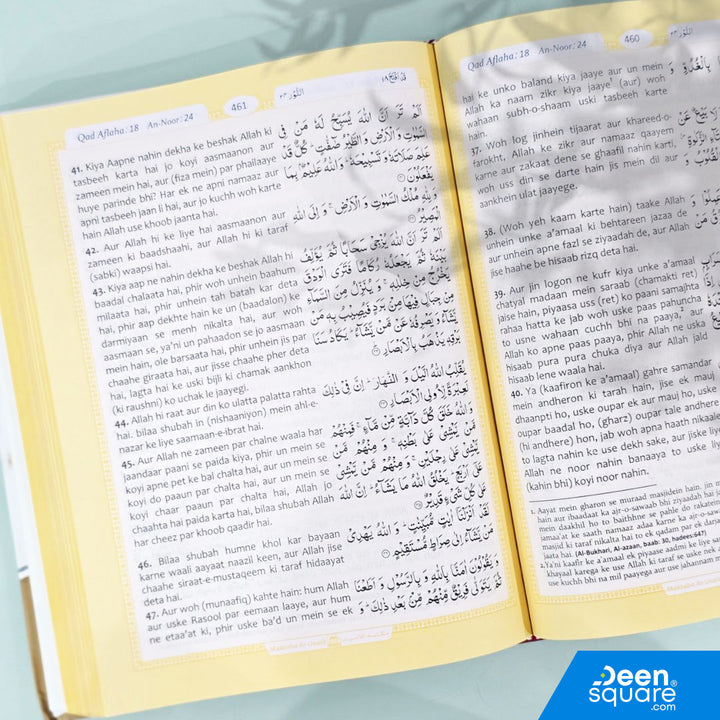 Qad Aflaha: 18 An-Noor: 24
460
النُّوْر ٢٤
hai ke unko baland kiya jaaye aur un mein
Allah ka naam zikr kiya jaaye² (aur) woh
wahaan subh-o-shaam uski tasbeeh karte
hain.
37. Woh log jinhein tijaarat aur khareed-o-
farokht, Allah ke zikr aur namaaz qayem
karne aur zakaat dene se ghaafil nahin karti,
woh uss din se darte hain jis mein dil aur
aankhein ulat jaayege.
38. (Woh yeh kaam karte hain) taake Allah
unhein unke a'amaal ki behtareen jazaa de
aur unhein apne fazl se ziyaadah de, aur Allah
jise haahe be hisaab rizq deta hai.
39. Aur jin logon ne kufr kiya unke a'amaal
chatyal madaan mein saraab (chamakti ret)
jaise hain, piyaasa uss (ret) ko paani samajhta
rahaa hatta ke jab woh uske paas pahuncha
to usne wahaan cuchh bhi na paaya,² aur
Allah ko apne paas paaya, phir Allah ne uska
hisaab pura pura chuka diya aur Allah jald
hisaab lene waala hai.
40. Ya (kaafiron ke a'amaal) gahre samandar
mein andheron ki tarah hain, jise ek mauj
dhaanpti ho, uske oupar ek aur mauj ho, uske
oupar baadal ho, (gharz) oupar tale andhere
(hi andhere) hon, jab woh apna haath nikaale
to lagta nahin ke use dekh sake, aur jiske liye
Allah ne noor nahin banaaya to uske liye
(kahin bhi) koyi noor nahin.
1. Aayat mein gharon se muraad masjidein hain. jin m
hain aur ibaadaat ka ajr-o-sawaab bhi ziyaadah hai
mein daakhil ho to baithhne se pahle do rakatein
jama'at ke saath namaaz adaa karne ka ajr-o-sawa
masjid ki taraf nikalta hai to ek qadam par ek darja
jaata hai. (Al-Bukhari, Al-azaan, baab: 30, hadees:647)
2.Ya'ni kaafir ke a'amaal ek piyaase aadmi ke liye sar
khayaal karega ke use Allah ki taraf se uske nek
use kuchh bhi na mil paayega aur use jahannam m
Qad Aflaha: 18 An-Noor: 24
461
النُّوْر ٢٤
قَدْ اَفْلَحَ ١٨
41. Kiya Aapne nahin dekha ke beshak Allah ki
tasbeeh karta hai jo koyi aasmaanon aur
zameen mein hai, aur (fiza mein) par phailaaye
huye parinde bhi? Har ek ne apni namaaz aur
apni tasbeeh jaan li hai, aur jo kuchh woh karte
hain Allah use khoob jaanta hai.
42. Aur Allah hi ke liye hai aasmaanon aur
zameen ki baadshaahi, aur Allah hi ki taraf
(sabki) waapsi hai.
43. Kiya aap ne nahin dekha ke beshak Allah hi
baadal chalaata hai, phir woh unhein baahum
milaata hai, phir unhein tah batah kar deta
hai, phir aap dekhte hain ke un (baadalon) ke
darmiyaan se menh nikalta hai, aur woh
aasmaan se, ya'ni un pahaadon se jo aasmaan
mein hain, ole barsaata hai, phir unhein jis par
chaahe giraata hai, aur jisse chaahe pher deta
hai, lagta hai ke uski bijli ki chamak aankhon
(ki raushni) ko uchak le jaayegi.
44. Allah hi raat aur din ko ulatta palatta rahta
hai. bilaa shubah in (nishaaniyon) mein ahl-e-
nazar ke liye saamaan-e-ibrat hai.
45. Aur Allah ne zameen par chalne waala har
jaandaar paani se paida kiya, phir un mein se
koyi apne pet ke bal chalta hai, aur un mein se
koyi do paaun par chalta hai, aur un mein se
koyi chaar paaun par chalta hai, Allah jo
chaahta hai paida karta hai, bilaa shubah Allah
har cheez par khoob qaadir hai.
46. Bilaa shubah humne khol kar bayaan
karne waali aayaat naazil keen, aur Allah jise
chaahe siraat-e-mustaqeem ki taraf hidaayat
deta hai.
47. Aur woh (munaafiq) kahte hain: hum Allah
aur uske Rasool par eemaan laaye, aur hum
ne etaa'at ki, phir uske ba'd un mein se ek
اَلَمْ تَرَ اَنَّ اللّٰهَ يُسَبِّحُ لَهٗ مَنْ فِى
السَّمٰوٰتِ وَ الْاَرْضِ وَ الطَّيْرُ صٰٓفّٰتٍ ؕ كُلٌّ قَدْ
عَلِمَ صَلَاتَهٗ وَ تَسْبِيْحَهٗ ؕ وَ اللّٰهُ عَلِيْمٌۢ بِمَا
يَفْعَلُوْنَ
وَ لِلّٰهِ مُلْكُ السَّمٰوٰتِ وَ الْاَرْضِ ۚ وَ اِلَى اللّٰهِ
الْمَصِيْرُ
اَلَمْ تَرَ اَنَّ اللّٰهَ يُزْجِىْ سَحَابًا ثُمَّ يُؤَلِّفُ
بَيْنَهٗ ثُمَّ يَجْعَلُهٗ رُكَامًا فَتَرَى الْوَدْقَ
يَخْرُجُ مِنْ خِلٰلِهٖ ۚ وَ يُنَزِّلُ مِنَ السَّمَآءِ
مِنْ جِبَالٍ فِيْهَا مِنْۢ بَرَدٍ فَيُصِيْبُ بِهٖ مَنْ
يَّشَآءُ وَ يَصْرِفُهٗ عَنْ مَّنْ يَّشَآءُ ؕ يَكَادُ سَنَا
بَرْقِهٖ يَذْهَبُ بِالْاَبْصَارِ
يُقَلِّبُ اللّٰهُ الَّيْلَ وَ النَّهَارَ ؕ اِنَّ فِىْ ذٰلِكَ
لَعِبْرَةً لِّاُولِى الْاَبْصَارِ
وَ اللّٰهُ خَلَقَ كُلَّ دَآبَّةٍ مِّنْ مَّآءٍ ۚ فَمِنْهُمْ
مَّنْ يَّمْشِىْ عَلٰى بَطْنِهٖ ۚ وَ مِنْهُمْ مَّنْ
يَّمْشِىْ عَلٰى رِجْلَيْنِ ۚ وَ مِنْهُمْ مَّنْ يَّمْشِىْ
عَلٰٓى اَرْبَعٍ ؕ يَخْلُقُ اللّٰهُ مَا يَشَآءُ ؕ اِنَّ اللّٰهَ
عَلٰى كُلِّ شَىْءٍ قَدِيْرٌ
لَقَدْ اَنْزَلْنَآ اٰيٰتٍ مُّبَيِّنٰتٍ ؕ وَ اللّٰهُ يَهْدِىْ
مَنْ يَّشَآءُ اِلٰى صِرَاطٍ مُّسْتَقِيْمٍ
وَ يَقُوْلُوْنَ اٰمَنَّا بِاللّٰهِ وَ بِالرَّسُوْلِ وَ اَطَعْنَا
ثُمَّ يَتَوَلّٰى فَرِيْقٌ مِّنْهُمْ مِّنْۢ بَعْدِ ذٰلِكَ ؕ وَ
Deen
square®
.com